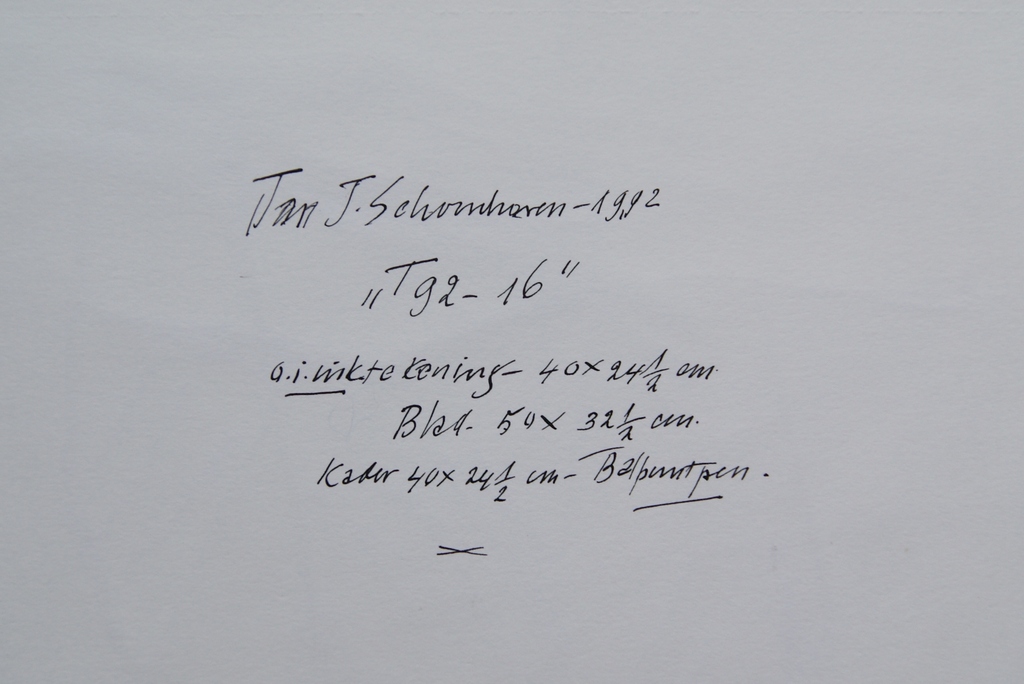 Jan J. Schoonhoven - 1992
„T92 - 16"
o.i. inktekening - 40 x 24 1/2 cm.
Blad. 50 x 32 1/2 cm.
Kader 40 x 24 1/2 cm - Balpuntpen.